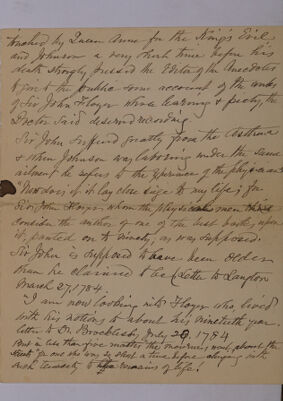 touched by Queen Anne for the King's Evil
and Johnson a very short time before his
death strongly pressed the Editor of the Anecdotes
to give the public some account of the works
of Sir John Floyer whose learning & piety, the
Doctor said deserved recording
Sir John suffered greatly from the Asthma
& when Johnson was laboring under the same
ailment he refers to the experience of the physician
"Now does it lay close siege to my life; for
Sir John Floyer whom the physical men
consider the author of one of the best books upon
it, panted on to ninety, as was supposed.
Sir John is supposed to have been older
than he claimed to be (Letter to Langton
March 27, 1784.
"I am now looking into Floyer who lived
with his notions to about his ninetieth year.
letter to Dr. Brocklesby, July 20, 1784
But in less than five months the mourners went about the
streets for one who was so short a time before clinging with
such tenacity to remains of life.